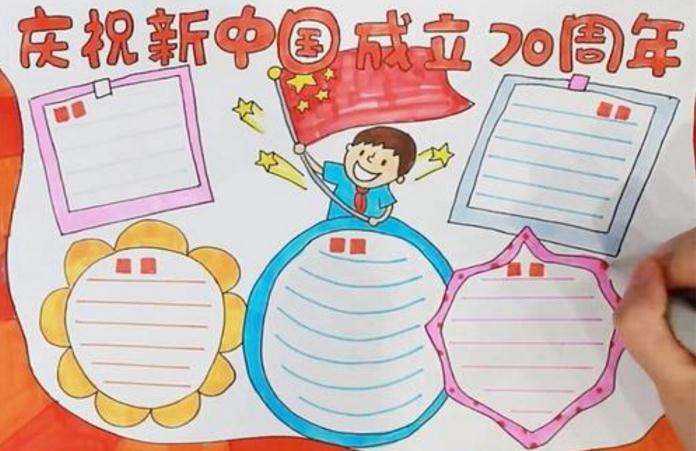 庆祝新中国成立70周年